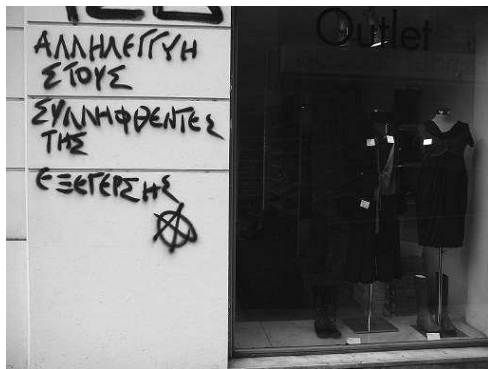 ΑΛΛΗΛΕΓΓΥΗ
ΣΤΟΥΣ
ΣΥΛΛΗΦΘΕΝΤΕΣ
ΤΗΣ
ΕΞΕΓΕΡΣΗΣ
Outlet